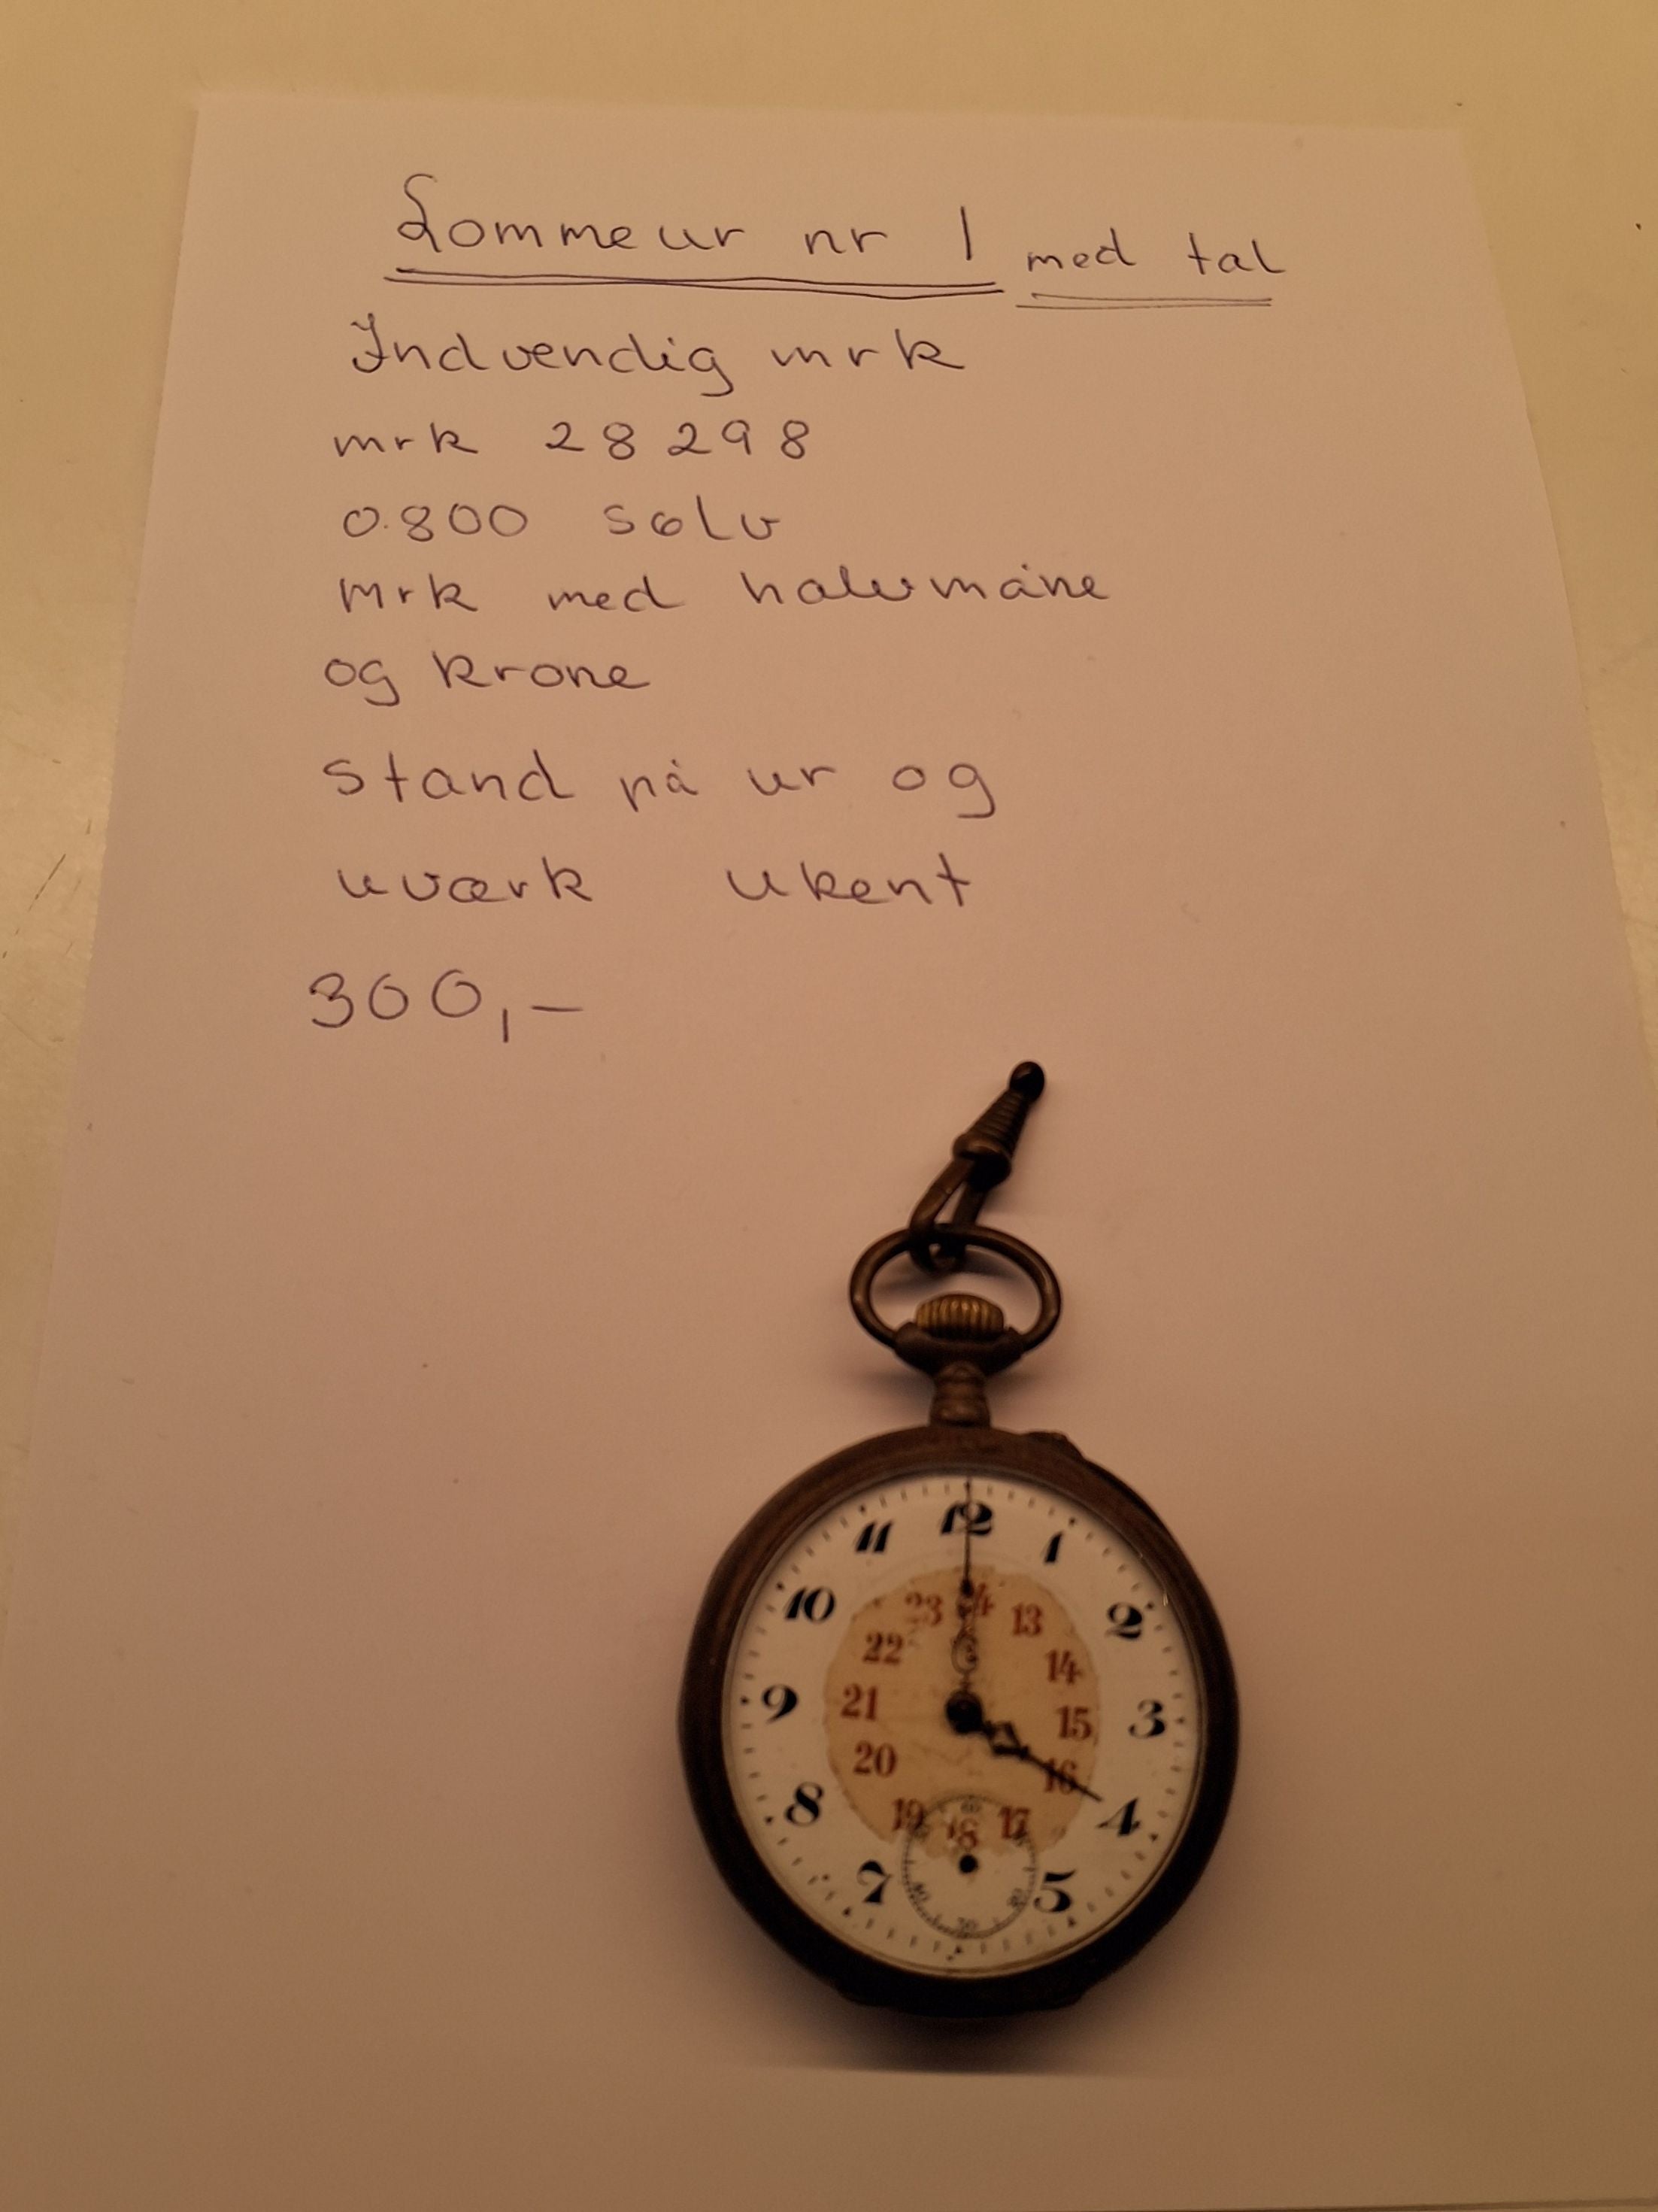 Lommeur nr 1 med tal
Indvendig mrk
mrk 28298
0.800 sølv
Mrk med halvmåne
og krone
stand på ur og
uværk ukent
300,-
12
11 1
10 2
9 3
8 4
7 5
23 24 13
22 14
21 15
20 16
19 18 17
60
40 20
30